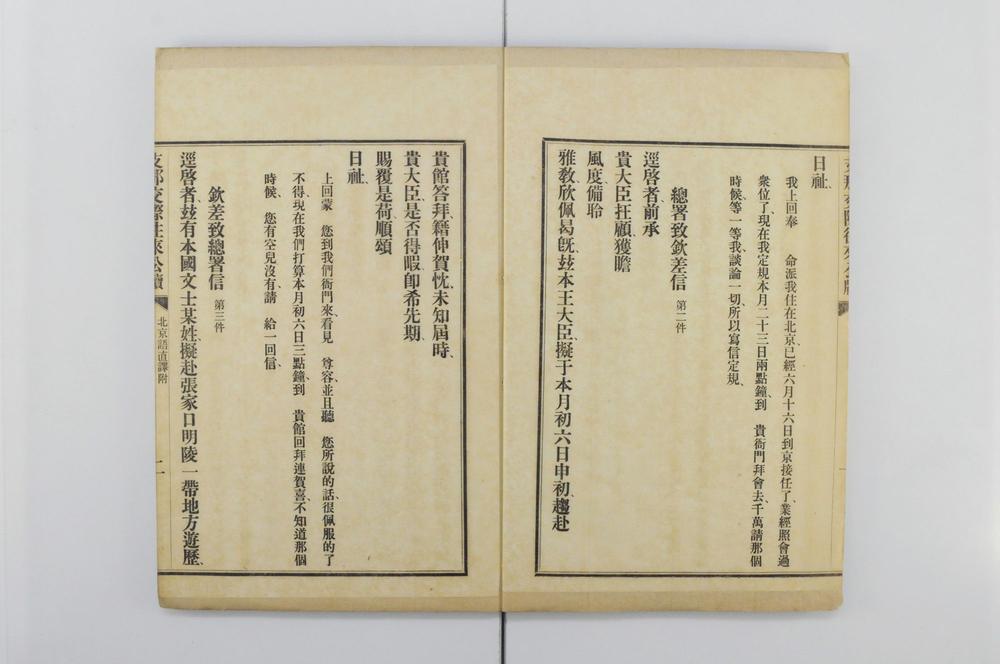 日祉、
我上回奉　命派我住在北京、已經六月十六日到京接任了、業經照會過
衆位了、現在我定規本月二十三日兩點鐘、到　貴衙門拜會去、千萬請那個
時候、等一等我、談論一切、所以寫信定規、
總署致欽差信　第二件
逕啓者、前承
貴大臣抂顧、獲瞻
風度、備聆
雅敎、欣佩曷旣、玆本王大臣、擬于本月初六日申初、趨赴
貴館答拜、藉伸賀忱、未知屆時、
貴大臣、是否得暇、卽希先期、
賜覆是荷、順頌
日祉、
上回蒙　您到我們衙門來、看見　尊容、並且聽　您所說的話、很佩服的了
不得、現在我們打算本月初六日三點鐘、到　貴館回拜連賀喜、不知道那個
時候、您有空兒沒有、請　給一回信、
欽差致總署信　第三件
逕啓者、玆有本國文士某姓、擬赴張家口明陵一帶地方遊歷、
支那交際往來公牘　北京語直譯附　二